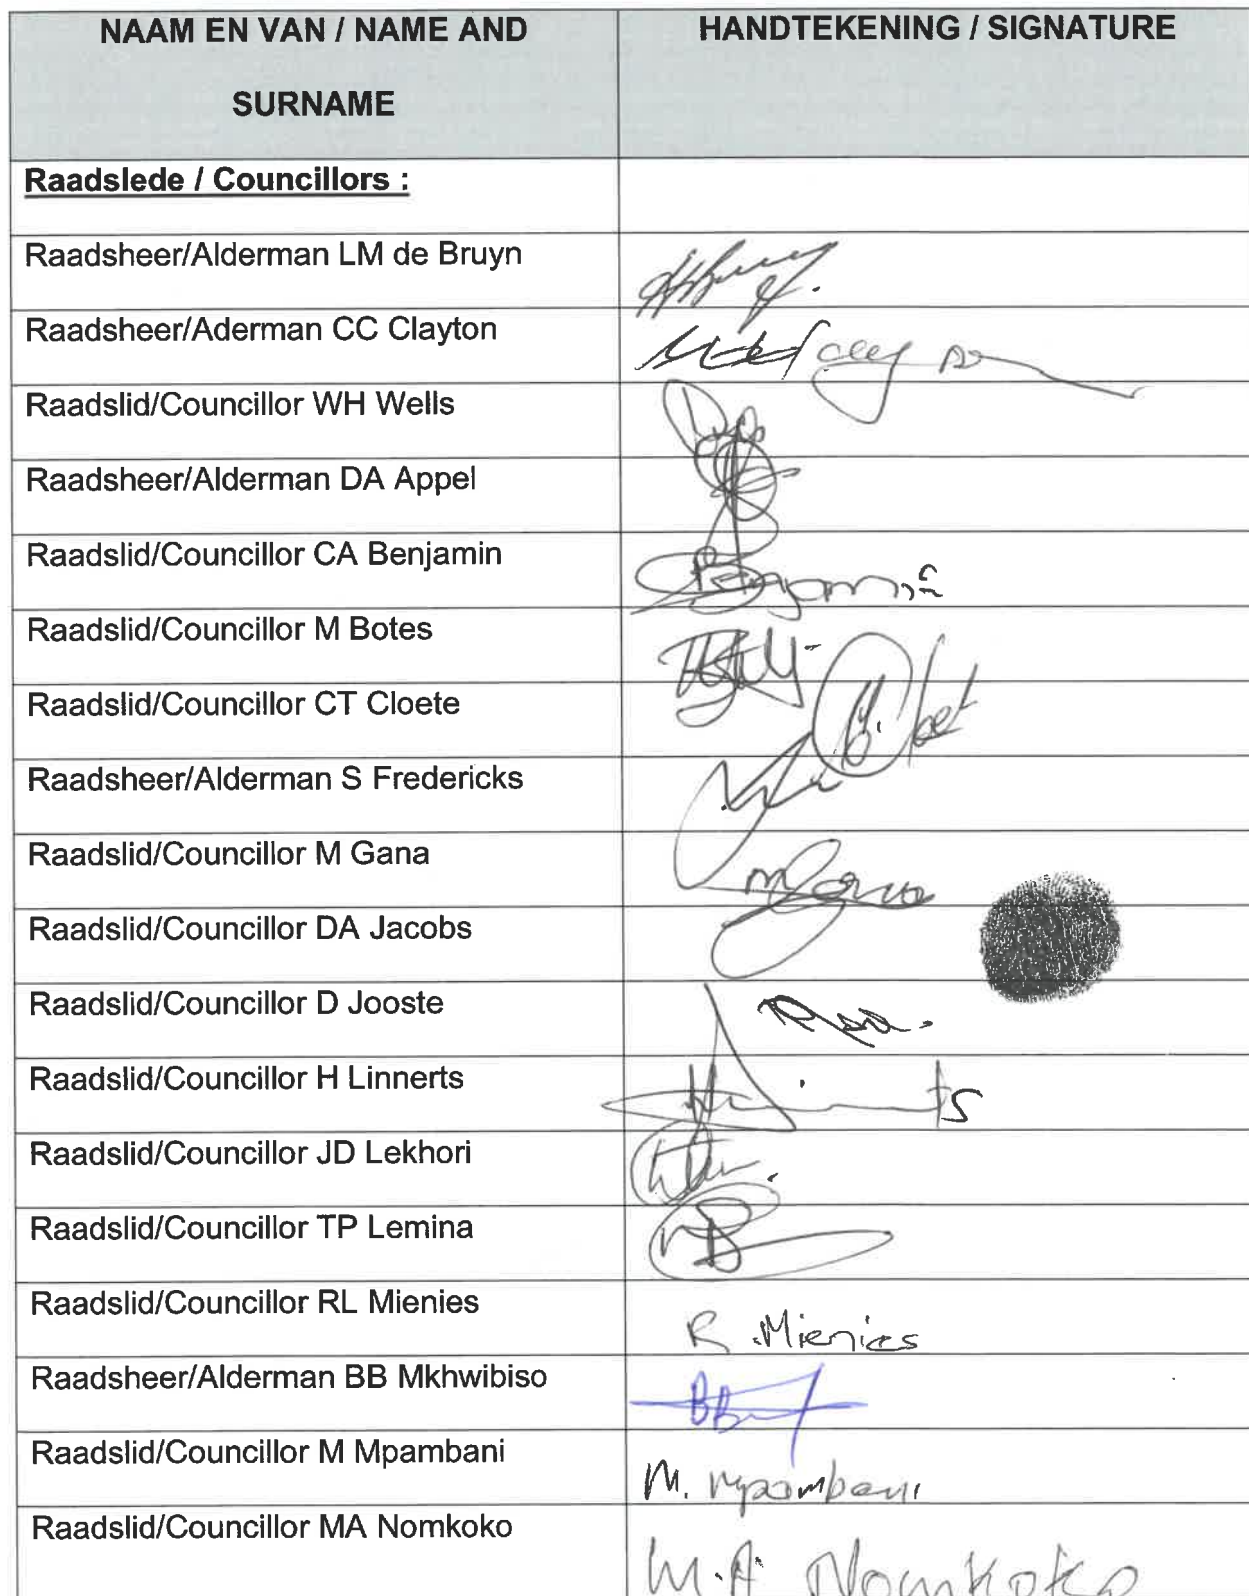 NAAM EN VAN / NAME AND
SURNAME
HANDTEKENING / SIGNATURE
Raadslede / Councillors :
Raadsheer/Alderman LM de Bruyn
Raadsheer/Aderman CC Clayton
Raadslid/Councillor WH Wells
Raadsheer/Alderman DA Appel
Raadslid/Councillor CA Benjamin
Raadslid/Councillor M Botes
Raadslid/Councillor CT Cloete
Raadsheer/Alderman S Fredericks
Raadslid/Councillor M Gana
Raadslid/Councillor DA Jacobs
Raadslid/Councillor D Jooste
Raadslid/Councillor H Linnerts
Raadslid/Councillor JD Lekhori
Raadslid/Councillor TP Lemina
Raadslid/Councillor RL Mienies
R. Mienies
Raadsheer/Alderman BB Mkhwibiso
Raadslid/Councillor M Mpambani
M. Mpambani
Raadslid/Councillor MA Nomkoko
M.A Nomkoko